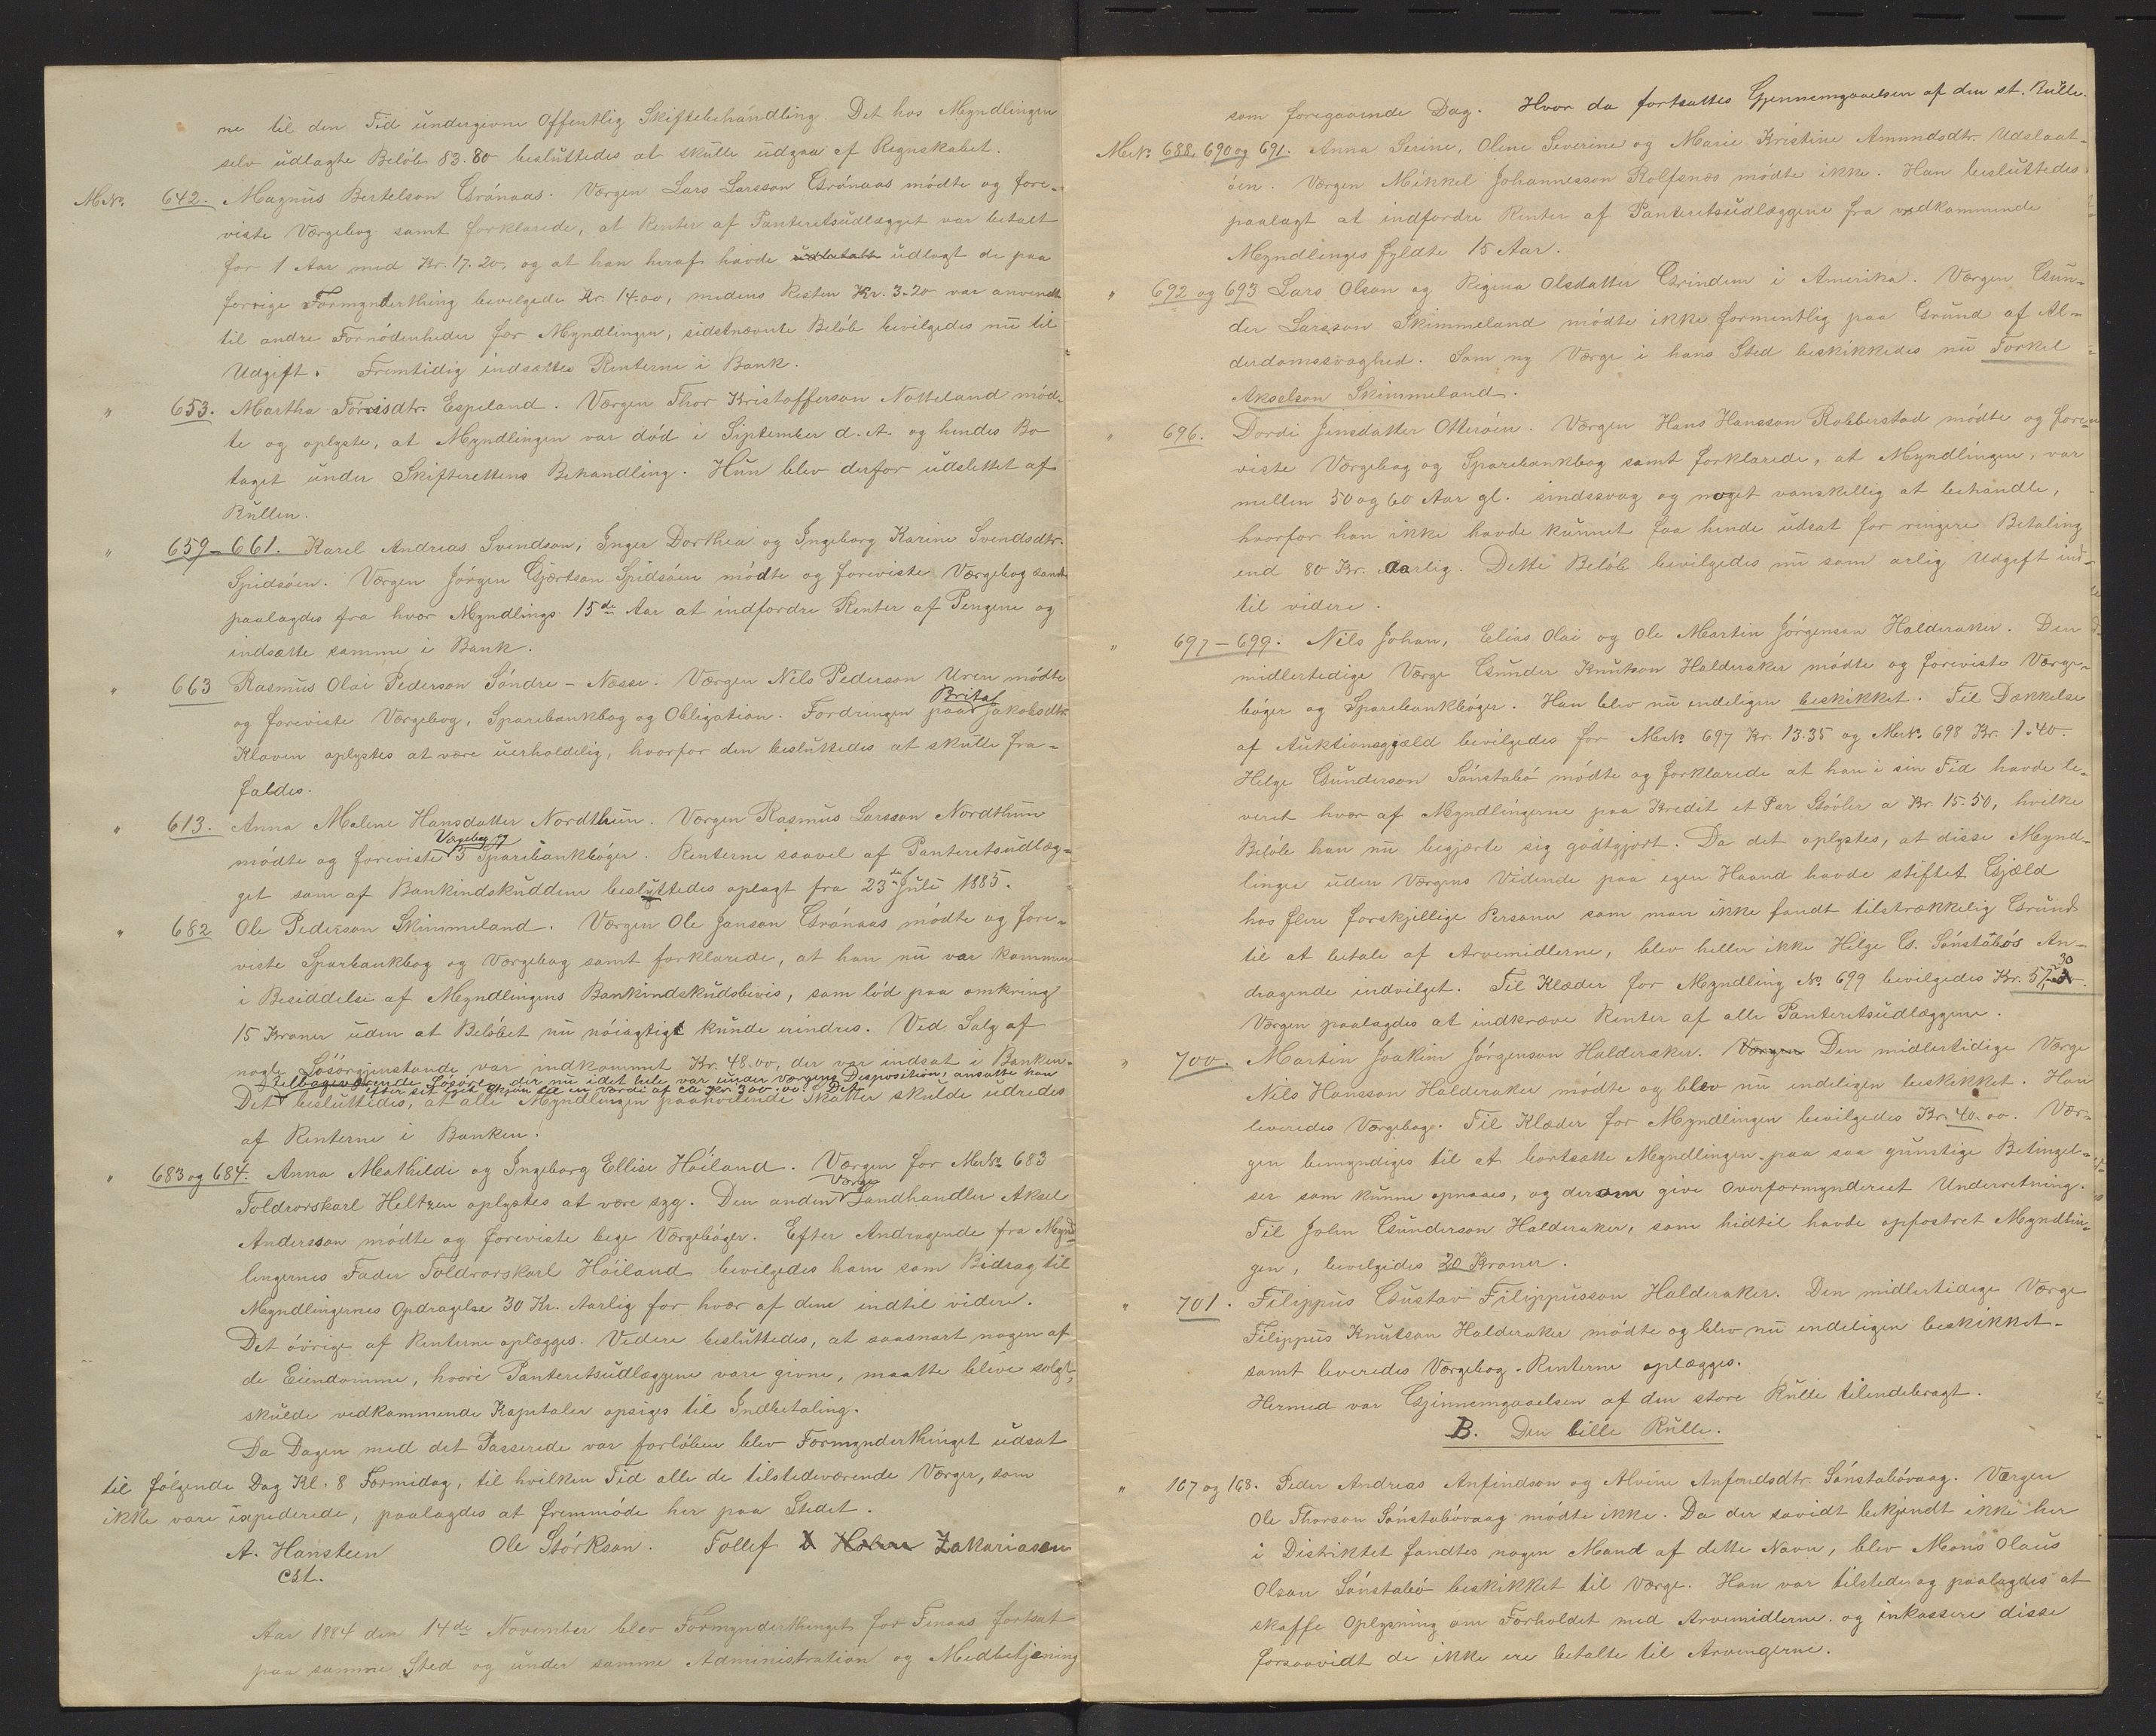 ne til den Tid undergivne Offentlig Skiftebehandling. Det hos Myndlingen
selv udlagte Beløb 83.80 besluttedes at skulle udgaa af Regnskabet.
M.No. 642. Magnus Bertelson Grønaas. Værgen Lars Larsson Grønaas mødte og fore-
viste Værgebog samt forklarede, at Renter af Panteretsudlægget var betalt
for 1 Aar med Kr. 17.20, og at han heraf havde udbetalt udlagt de paa
forrige Formynderthing bevilgede Kr. 14.00, medens Resten Kr. 3.20 var anvendt
til andre Fornødenheder for Myndlingen, sidstnævnte Beløb bevilgedes nu til
Udgift. Fremtidig indsættes Renterne i Bank.
" 653. Martha Torrisdtr. Espeland. Værgen Thor Kristofferson Notteland mød-
te og oplyste, at Myndlingen var død i September d. A. og hendes Bo
taget under Skifterettens Behandling. Hun blev derfor udslettet af
Rullen.
" 659-661. Karel Andreas Svendson, Inger Dorthea og Ingeborg Karine Svendsdtr.
Spidsøen. Værgen Jørgen Gjærtson Spidsøen mødte og foreviste Værgebog samt
paalagdes fra hvor Myndlings 15de Aar at indfordre Renter af Pengene og
indsætte samme i Bank.
" 663 Rasmus Olai Pederson Søndre-Næsse. Værgen Nils Pederson Uren mødte
og foreviste Værgebog, Sparebankbog og Obligation. Fordringen paa Brita Jakobsdtr.
Kloven oplystes at være uerholdelig, hvorfor den besluttedes at skulle fra-
faldes.
" 613. Anna Malene Hansdatter Nordthun. Værgen Rasmus Larsson Nordthun
mødte og foreviste Værgebog og 3 Sparebankbøger. Renterne saavel af Panteretsudlæg-
get som af Bankindskuddene besluttedes oplagt fra 23de Juli 1885.
" 682 Ole Pederson Skimmeland. Værgen Ole Janson Grønaas mødte og fore-
viste Sparbankbog og Værgebog samt forklarede, at han nu var kommen
i Besiddelse af Myndlingens Bankindskudsbevis, som lød paa omkring
15 Kroner uden at Beløbet nu nøiagtigt kunde erindres. Ved Salg af
nogle Løsøregjenstande var indkommet Kr. 48.00, der var indsat i Banken.
tilbageværende Løsøre, der nu i det hele var under Værgens Disposition, ansatte han
efter sit eget Skjøn til en værdi af ca Kr. 300.00. Det
Det besluttedes, at alle Myndlingen paahvilende Skatter skulde udredes
af Renterne i Banken.
" 683 og 684. Anna Mathilde og Ingeborg Ellise Høiland. Værgen for M.No. 683
Toldrorskarl Heltzen oplystes at være syg. Den anden Værge Landhandler Aksel
Andersson mødte og foreviste bege Værgebøger. Efter Andragende fra Mynd-
lingernes Fader Toldrorskarl Høiland bevilgedes ham som Bidrag til
Myndlingernes Opdragelse 30 Kr. Aarlig for hver af dem indtil videre.
Det øvrige af Renterne oplægges. Videre besluttedes, at saasnart nogen af
de Eiendomme, hvori Panteretsudlæggene vare givne, maatte blive solgt,
skulde vedkommende Kapitaler opsiges til Indbetaling.
Da Dagen med det Passerede var forløben blev Formynderthinget udsat
til følgende Dag Kl. 8 Formidag, til hvilken Tid alle de tilstedeværende Værger, som
ikke vare expederede, paalagdes at fremmøde her paa Stedet.
A. Hansteen Ole Størkson. Tollef Zakariasen
cst.
Aar 1884 den 14de November blev Formynderthinget for Finaas fortsat
paa samme Sted og under samme Administration og Medbetjening
som foregaaende Dag. Hvor da fortsattes Gjennemgaaelsen af den st. Rulle.
M.No. 688, 690 og 691. Anna Serine, Oline Severine og Marie Kristine Amundsdtr. Udslaat-
øen. Værgen Mikkel Johannesson Rolfsnes mødte ikke. Han besluttedes
paalagt at indfordre Renter af Panteretsudlæggene fra vedkommende
Myndlinges fyldte 15 Aar.
" 692 og 693 Lars Olson og Regina Olsdatter Grindem i Amerika. Værgen Gun-
der Larsson Skimmeland mødte ikke formentlig paa Grund af Al-
derdomssvaghed. Som ny Værge i hans Sted beskikkedes nu Torkel
Akselson Skimmeland.
" 696. Dordi Jensdatter Otterøen. Værgen Hans Hansson Robberstad mødte og fore-
viste Værgebog og Sparebankbog samt forklarede, at Myndlingen, var
mellem 50 og 60 Aar gl. sindssvag og noget vanskellig at behandle,
hvorfor han ikke havde kunnet faa hende udsat for ringere Betaling
end 80 Kr. aarlig. Dette Beløb bevilgedes nu som arlig Udgift ind-
til videre.
" 697-699. Nils Johan, Elias Olai og Ole Martin Jørgenson Halderaker. Den
midlertedige Værge Gunder Knutson Halderaker mødte og foreviste Værge-
bøger og Sparebankbøger. Han blev nu endeligen beskikket. Til Dækkelse
af Auktionsgjæld bevilgedes for M.No. 697 Kr. 13.35 og M.No. 698 Kr. 1.40.
Helge Gunderson Sønstabø mødte og forklarede at han i sin Tid havde le-
veret hver af Myndlingerne paa Kredit et Par Støvler a Kr. 15.50, hvilke
Beløb han nu begjærte sig godtgjort. Da det oplystes, at disse Mynd-
linger uden Værgens Vidende paa egen Haand havde stiftet Gjæld
hos flere forskjellige Personer som man ikke fandt tilstrækkelig Grund
til at betale af Arvemidlerne, blev heller ikke Helge G. Sønstabøs An-
dragende indvilget. Til Klæder for Myndling No. 699 bevilgedes Kr. 57.30
Værgen paalagdes at indkræve Renter af alle Panteretsudlæggene.
" 700. Martin Joakim Jørgenson Halderaker. Værgen Den midlertidige Værge
Nils Hansson Halderaker mødte og blev nu endeligen beskikket. Han
leveredes Værgebog. Til Klæder for Myndlingen bevilgedes Kr. 40.00. Vær-
gen bemyndiges til at bortsætte Myndlingen paa saa gunstige Betingel-
ser som kunne opnaaes, og derom give Overformynderiet Underretning.
Til John Gunderson Halderaker, som hidtil havde opfostret Myndlin-
gen, bevilgedes 20 Kroner.
" 701. Filippus Gustav Filippusson Halderaker. Den midlertidige Værge
Filippus Knutson Halderaker mødte og blev nu endeligen beskikket
samt leveredes Værgebog. Renterne oplægges.
Hermed var Gjennemgaaelsen af den store Rulle tilendebragt.
B. Den lille Rulle.
" 167 og 168. Peder Andreas Anfindson og Alvine Anfindsdtr. Sønstabøvaag. Værgen
Ole Thorson Sønstabøvaag mødte ikke. Da der savidt bekjendt ikke her
i Distriktet fandtes nogen Mand af dette Navn, blev Mons Olaus
Olson Sønstabø beskikket til Værge. Han var tilstede og paalagdes at
skaffe Oplysning om Forholdet med Arvemidlerne og inkassere disse
forsaavidt de ikke ere betalte til Arvingerne.